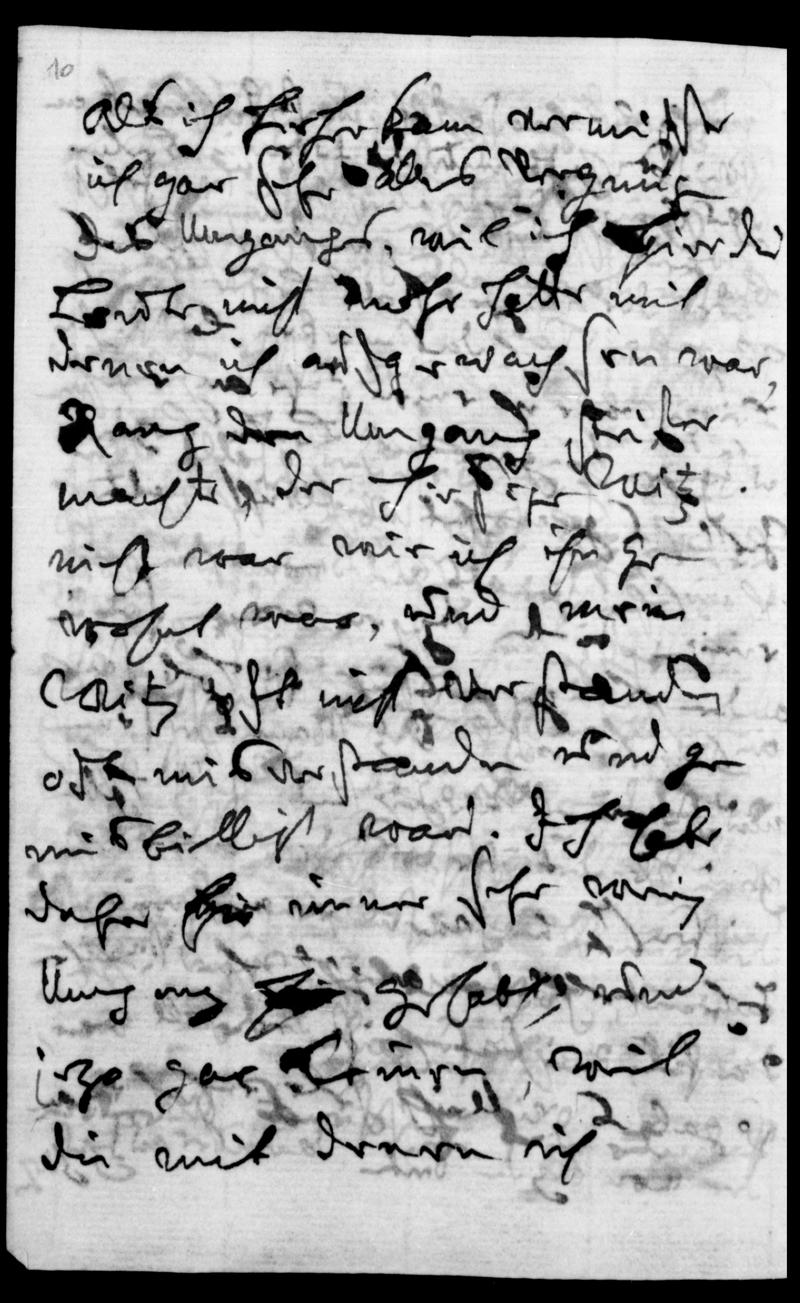 10
Als ich hieher kam vermiste
ich gar sehr alles Vergnüg
des Umgangs, weil ich hier die
Leute nicht mehr hatte mit
denen ich aufgewachsen war,
Rang den Umgang steifer
machte, der hiesige Witz
nicht war wie ich ihn ge
wohnt war, und mein
Witz oft nicht verstanden
oft misverstanden und ge
misbilligt ward. Ich habe
daher hie immer sehr wenig
Umgang gehabt, und
izo gar keinen, weil
die mit denen ich